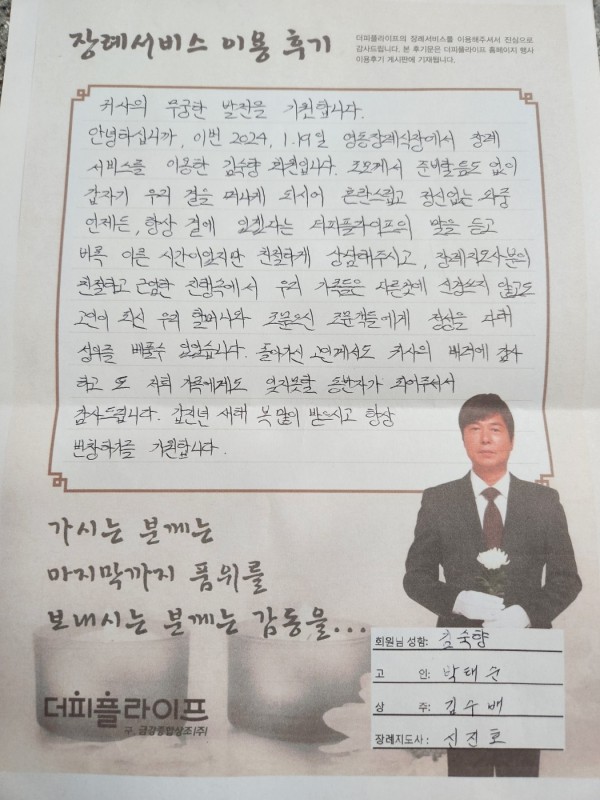 장례서비스 이용 후기
더피플라이프의 장례서비스를 이용해주셔서 진심으로
감사드립니다. 본 후기문은 더피플라이프 홈페이지 행사
이용후기 게시판에 기재됩니다.
귀사의 무궁한 발전을 기원합니다.
안녕하십니까, 이번 2024, 1.19일 영동장례식장에서 장례
서비스를 이용한 김숙향 회원입니다. 조모께서 준비할틈도 없이
갑자기 우리 곁을 떠나게 되시어 혼란스럽고 정신없는 와중
언제든, 항상 곁에 있겠다는 더피플라이프의 말을 듣고
비록 이른 시간이었지만 친절하게 상담해주시고, 장례지도사분의
친절하고 근엄한 진행속에서 우리 가족들은 다른곳에 신경쓰지 않고도
고인이 되신 우리 할머니와 조문오신 조문객들에게 정성을 다해
성의를 베풀수 있었습니다. 돌아가신 고인께서도 귀사의 배려에 감사
하고 또 저희 가족에게도 잊지못할 동반자가 되어주셔서
감사드립니다. 갑진년 새해 복 많이 받으시고 항상
번창하기를 기원합니다.
가시는 분께는
마지막까지 품위를
보내시는 분께는 감동을...
회원님 성함: 김숙향
고 인: 박태순
상 주: 김수배
장례지도사: 신진호
더피플라이프
구. 금강종합상조(주)